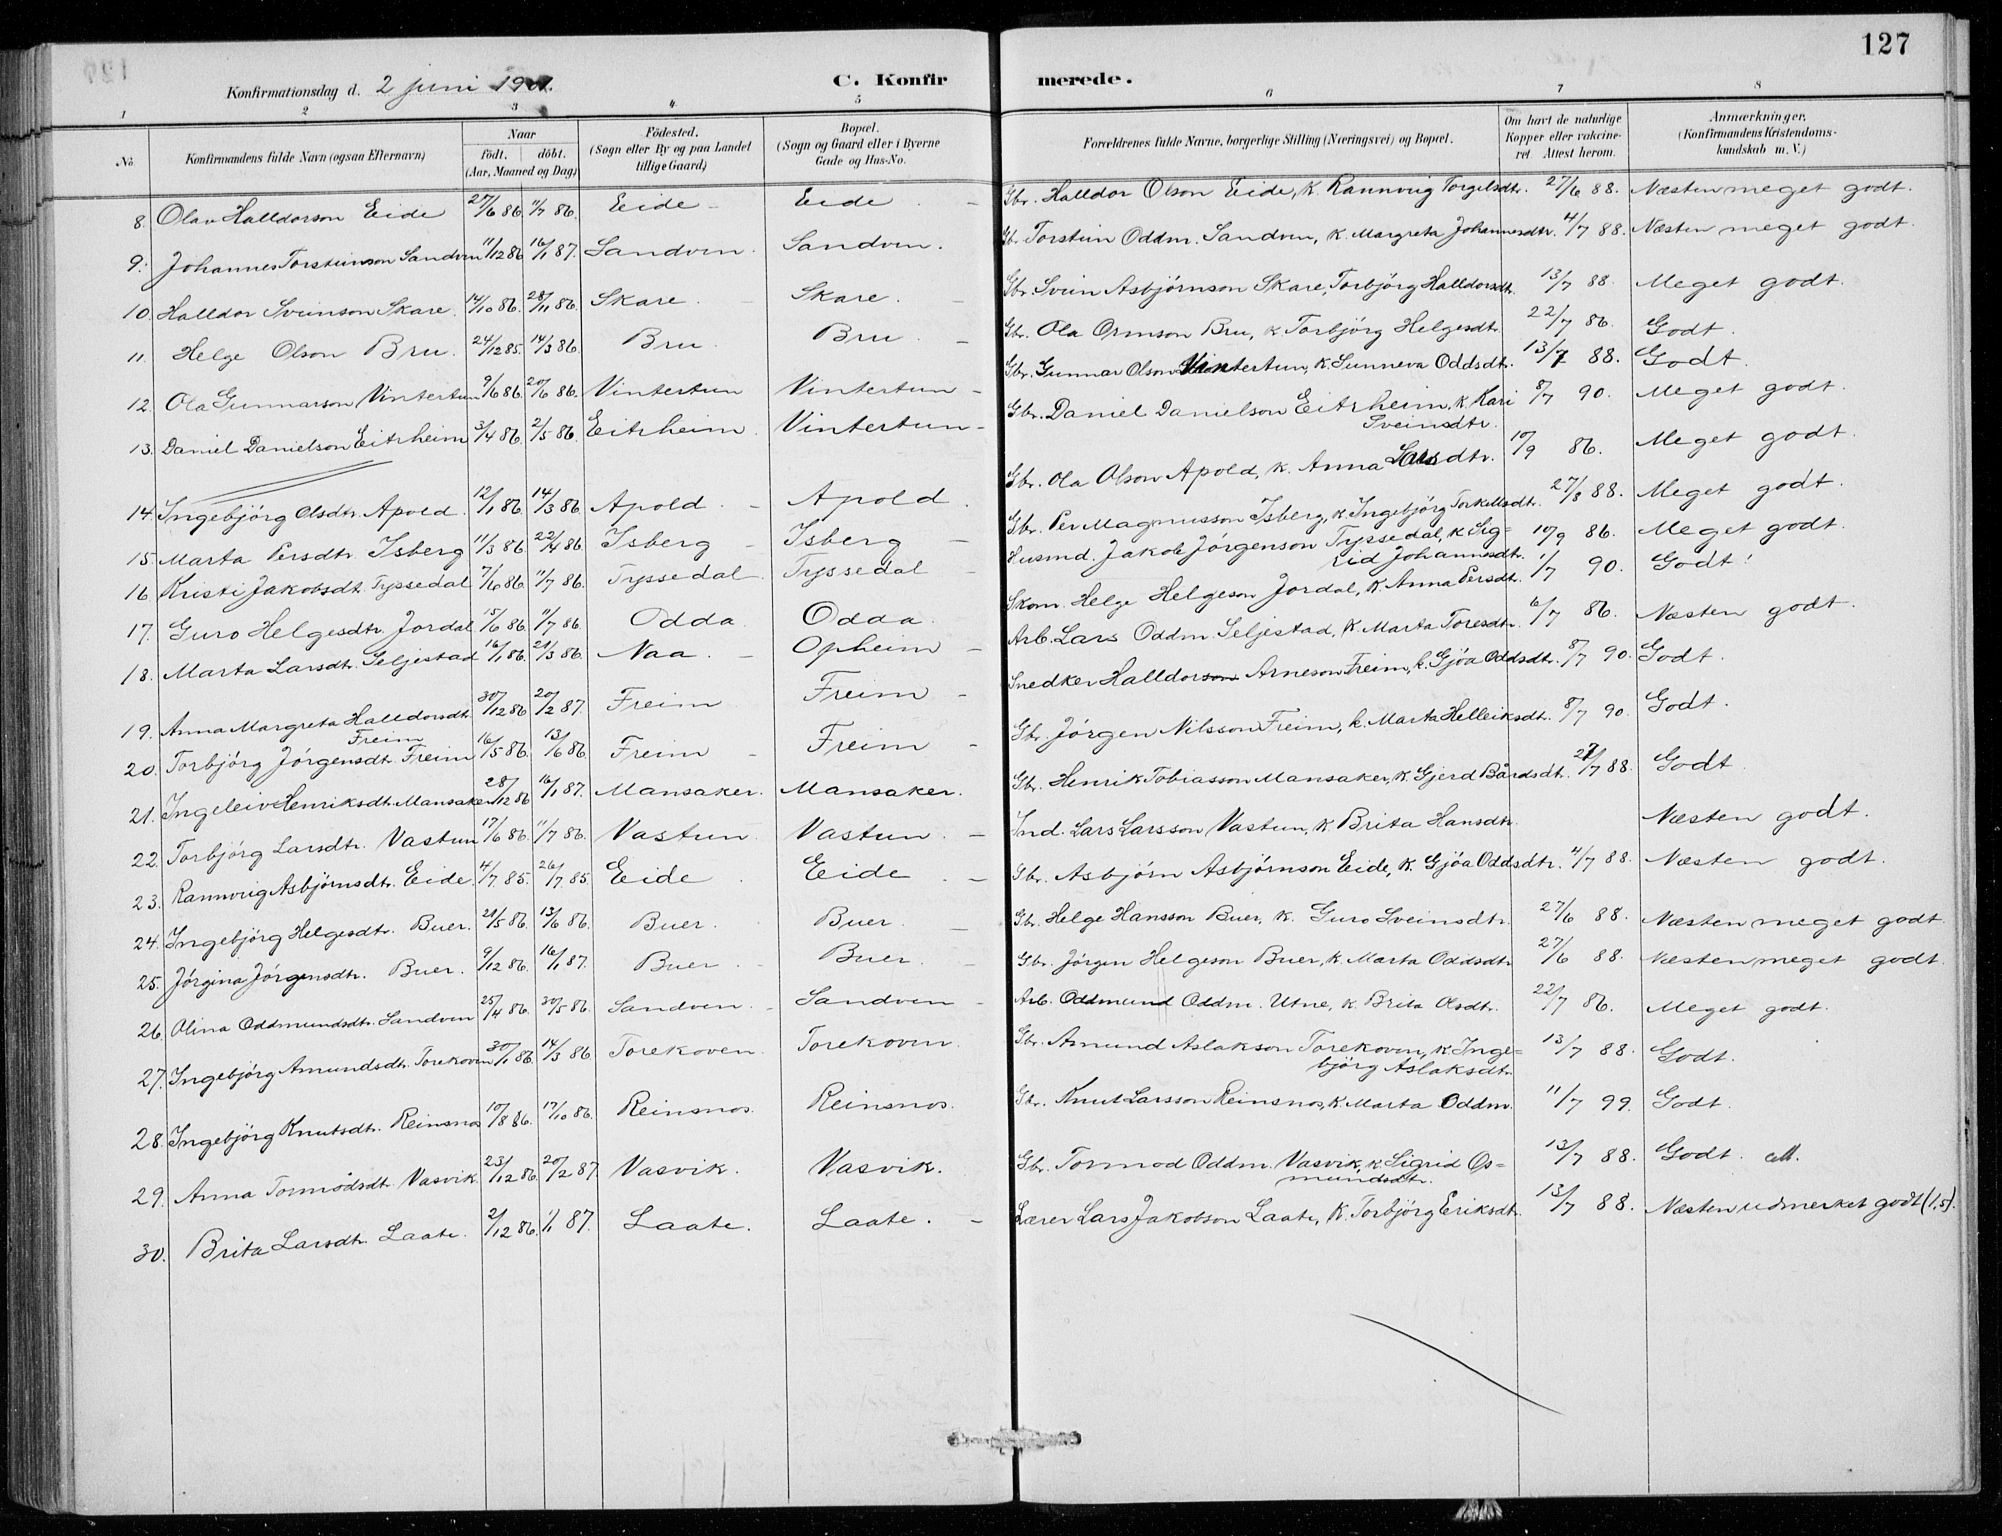 127
Konfirmationsdag d. 2 juni 1901.
C. Konfirmerede.
1 2 3 4 5 6 7 8
No. Konfirmandens fulde Navn (ogsaa Efternavn) Naar födt. döbt. (Aar, Maaned og Dag) Födested. (Sogn eller By og paa Landet tillige Gaard) Bopæl. (Sogn og Gaard eller i Byerne Gade og Hus-No. Forældrenes fulde Navne, borgerlige Stilling (Næringsvei) og Bopæl. Om havt de naturlige Kopper eller vakcineret. Attest herom. Anmærkninger. (Konfirmandens Kristendomskundskab m. V.)
8. Olav Halldorson Eide 27/6 86. 11/7 86. Eide Eide Gbr. Halldor Olson Eide, k. Rannvig Torgilsdtr. 27/6 88. Næsten meget godt.
9. Johannes Torsteinson Sandven 11/12 86 16/1 87. Sandven. Sandven. Gbr. Torstein Oddm. Sandven, k. Margreta Johannesdtr. 4/7 88. Næsten meget godt.
10. Halldor Sveinson Skare. 14/10 86. 28/11 86. Skare. Skare. Gbr. Svein Asbjörnson Skare, Torbjörg Halldorsdtr. 13/7 88. Meget godt.
11. Helge Olson Bru. 24/12 85. 14/3 86. Bru. Bru. Gbr. Ola Ormson Bru, k. Torbjörg Helgesdtr. 22/7 86. Godt.
12. Ola Gunnarson Vintertun 9/6 86. 20/6 86. Vintertun Vintertun Gbr. Gunnar Olson Vintertun, k. Sunneva Oddsdtr. 13/7 88. Godt.
13. Daniel Danielson Eitrheim 3/4 86. 2/5 86. Eitrheim. Vintertun Gbr. Daniel Danielson Eitrheim, k. Kari Sveinsdtr. 8/7 90. Meget godt.
14. Ingebjörg Olsdtr. Apold. 12/1 86. 14/3 86 Apold. Apold. Gbr. Ola Olson Apold, k. Anna Larsdtr. 10/9 86. Meget godt.
15. Marta Persdtr. Isberg 11/3 86 22/4 86. Isberg Isberg Gbr. Per Magnusson Isberg, k. Ingebjörg Torkellsdtr. 27/8 88. Meget godt.
16. Kristi Jakobsdt. Tyssedal 7/6 86. 11/7 86. Tyssedal. Tyssedal Husmd. Jakob Jörgenson Tyssedal, k. Sigrid Johannesdtr. 10/9 86. Meget godt.
17. Guro Helgesdtr. Jordal 15/6 86. 11/7 86. Odda. Odda. Skom. Helge Helgeson Jordal, k. Anna Persdtr. 1/7 90. Godt!
18. Marta Larsdtr. Seljestad 16/1 86. 21/3 86. Naa. Opheim Arb. Lars Oddm. Seljestad, k. Marta Toresdtr. 6/7 86. Næsten godt.
19. Anna Margreta Halldorsdtr. Freim 30/12 86 20/2 87. Freim Freim Snedker Halldorson Arneson Freim, k. Gjöa Oddsdtr. 8/7 90. Godt.
20. Torbjörg Jörgensdt. Freim 16/5 86. 13/6 86. Freim Freim Gbr. Jörgen Nilsson Freim, k. Marta Helleiksdtr. 8/7 90. Godt.
21. Ingeleiv Henriksdt. Mansaker 28/12 86 16/1 87. Mansaker. Mansaker. Gbr. Henrik Tobiasson Mansaker, k. Gjerd Bårdsdt. 27/7 88. Godt.
22. Torbjörg Larsdtr. Vastun 17/6 86. 11/7 86. Vastun. Vastun. Ind. Lars Larsson Vastun, k. Brita Hansdtr. Næsten godt.
23. Rannvig Asbjörnsdtr. Eide. 4/7. 85. 26/7 85. Eide Eide. Gbr. Asbjörn Asbjörnson Eide, k. Gjöa Oddsdtr. 4/7 88. Næsten godt.
24. Ingebjörg Helgesdtr. Buer. 21/5 86. 13/6 86. Buer. Buer. Gbr. Helge Hansson Buer, k. Guro Sveinsdtr. 27/6 88. Næsten meget godt.
25. Jörgina Jörgensdtr. Buer. 9/12 86. 16/1 87. Buer Buer. Gbr. Jörgen Helgeson Buer, k. Marta Oddsdtr. 27/6 88. Næsten meget godt.
26. Olina Oddmundsdtr. Sandven 25/4 86. 30/5 86. Sandven. Sandven Arb. Oddmund Oddm. Utne, k. Brita Olsdtr. 22/7 86. Meget godt.
27. Ingebjörg Amundsdtr. Torekoven 30/1 86. 14/3 86 Torekoven. Torekoven. Gbr. Amund Aslakson Torekoven, k. Ingebjörg Aslaksdtr. 13/7 88. Godt.
28. Ingebjörg Knutsdtr. Reinsnos 10/8 86. 17/10 86. Reinsnos. Reinsnos. Gbr. Knut Larsson Reinsnos, k. Marta Oddm. 11/7 99. Godt.
29. Anna Tormodsdt. Vasvik. 23/12 86. 20/2 87. Vasvik. Vasvik. Gbr. Tormod Oddm. Vasvik, k. Sigrid Osmundsdtr. 13/7 88. Godt.
30. Brita Larsdtr. Laate. 2/12 86. 1/1 87. Laate. Laate. Lærer Lars Jakobson Laate, k. Torbjörg Eriksdt. 13/7 88. Næsten udmerket godt (1,5).